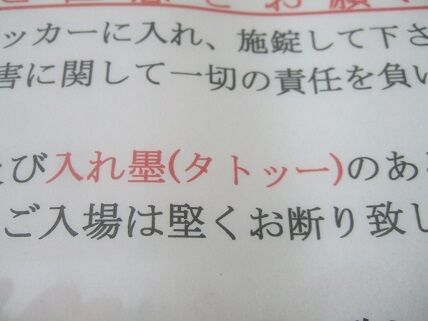 とお願い
ッカーに入れ、施錠して下さ
害に関して一切の責任を負い
及び入れ墨(タトゥー)のあ
ご入場は堅くお断り致し